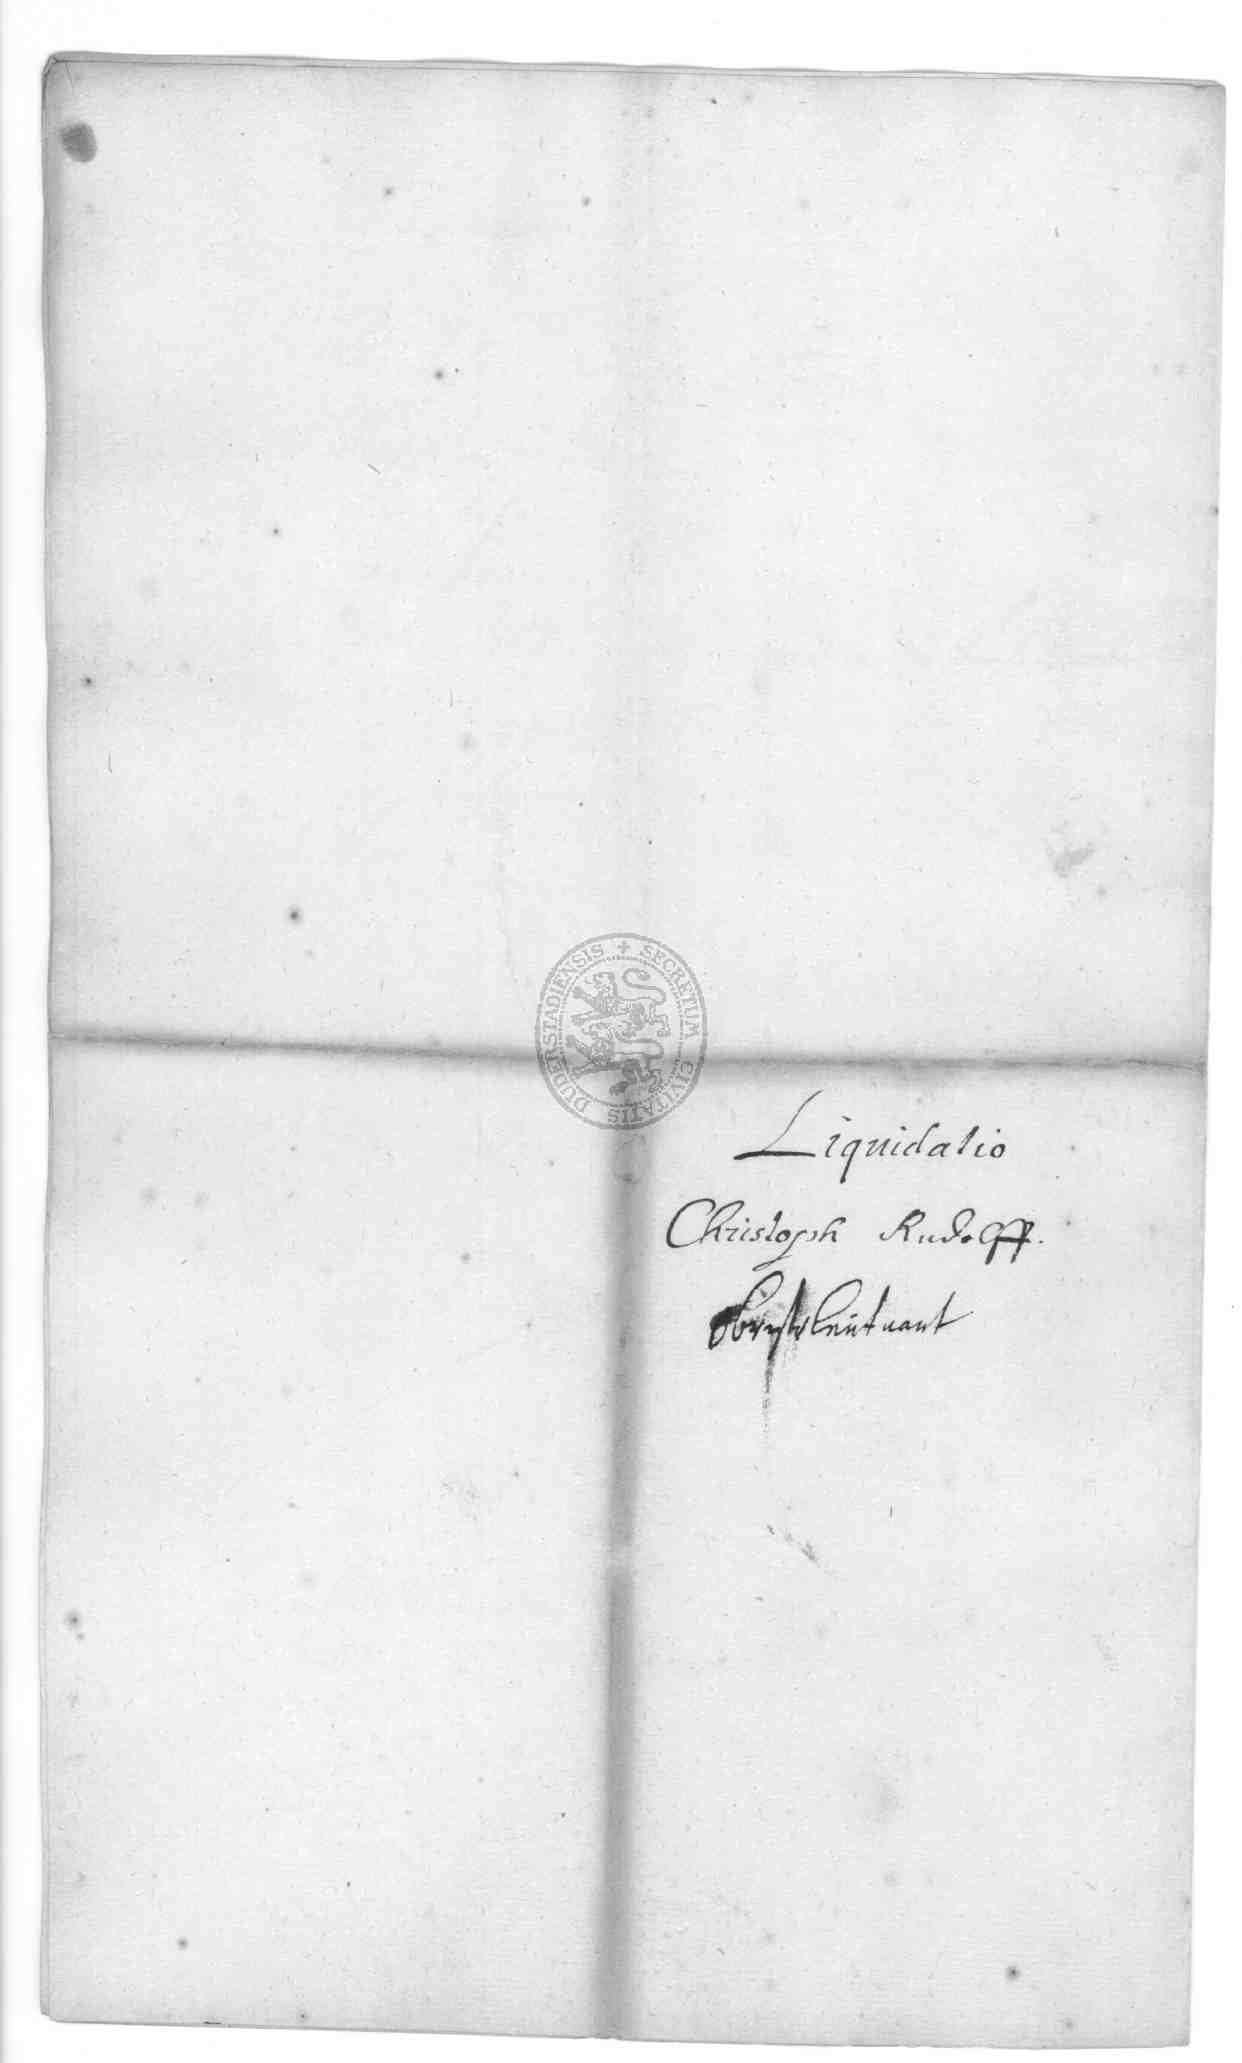 SECRETUM CIVITATIS DUDERSTADIENSIS
Liquidatio
Christoph Rudolff.
Obrystleutnant